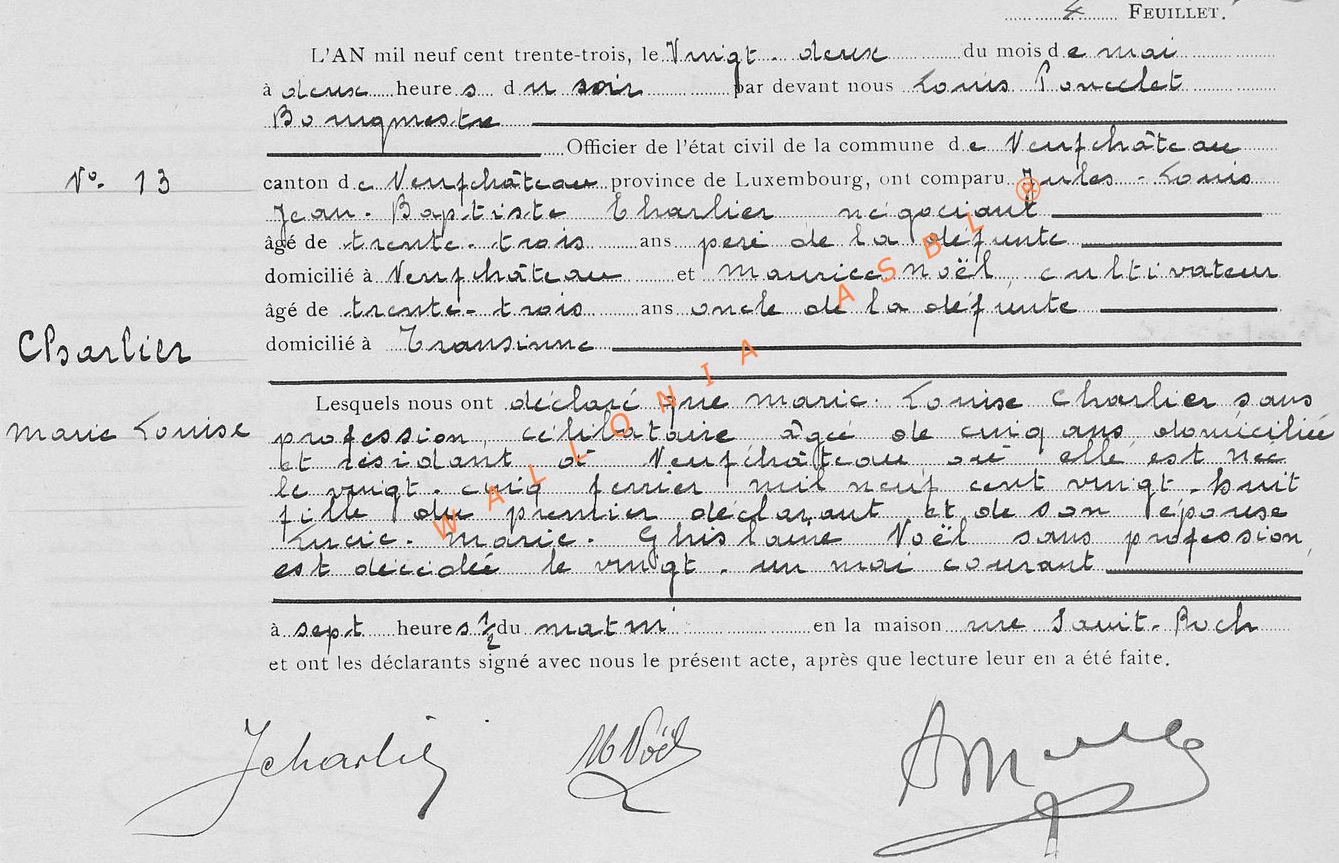 4 FEUILLET.
L'AN mil neuf cent trente-trois, le Vingt-deux du mois de mai
à deux heures du soir par devant nous Louis Poncelet
Bourgmestre
Officier de l'état civil de la commune de Neufchâteau
N° 13
canton de Neufchâteau province de Luxembourg, ont comparu Jules-Louis
Jean-Baptiste Charlier négociant
âgé de trente-trois ans père de la défunte
domicilié à Neufchâteau et Maurice Noël, cultivateur
âgé de trente-trois ans oncle de la défunte
Charlier
domicilié à Transinne
Lesquels nous ont déclaré que Marie-Louise Charlier sans
Marie Louise
profession, célibataire, âgée de cinq ans, domiciliée
et résidant à Neufchâteau où elle est née
le vingt-cinq février mil neuf cent vingt-huit
fille du premier déclarant et de son épouse
Lucie-Marie-Ghislaine Noël sans profession,
est décédée le vingt-un mai courant
à sept heures 1/2 du matin en la maison rue Saint-Roch
et ont les déclarants signé avec nous le présent acte, après que lecture leur en a été faite.
JCharlier M Noël
WALLONIA ASBL ®